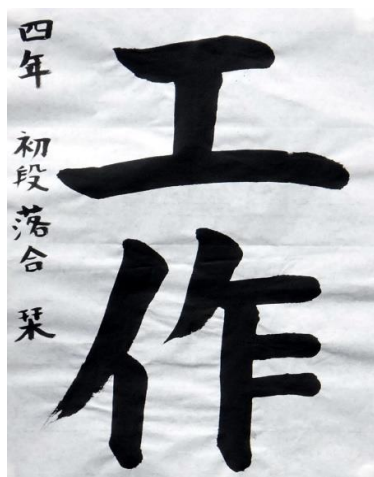 工作
四年 初段 落合 栞